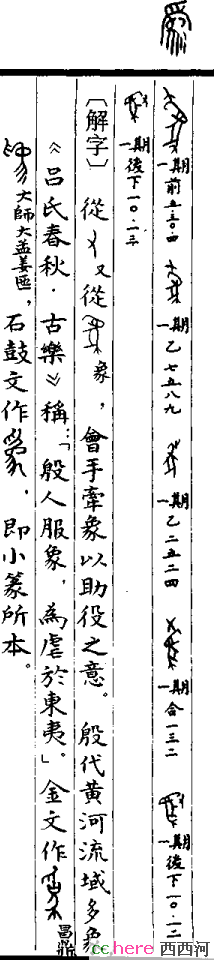 一期前五.三〇.四
一期乙七五八九
一期乙二五二四
一期合一三二
一期後下一〇.一二
一期後下一〇.一三
〔解字〕從又從象，會手牽象以助役之意。殷代黃河流域多象
《呂氏春秋.古樂》稱:「殷人服象，為虐於東夷」。金文作昌鼎
大師大孟姜匜，石鼓文作，即小篆所本。
cchere 西西河